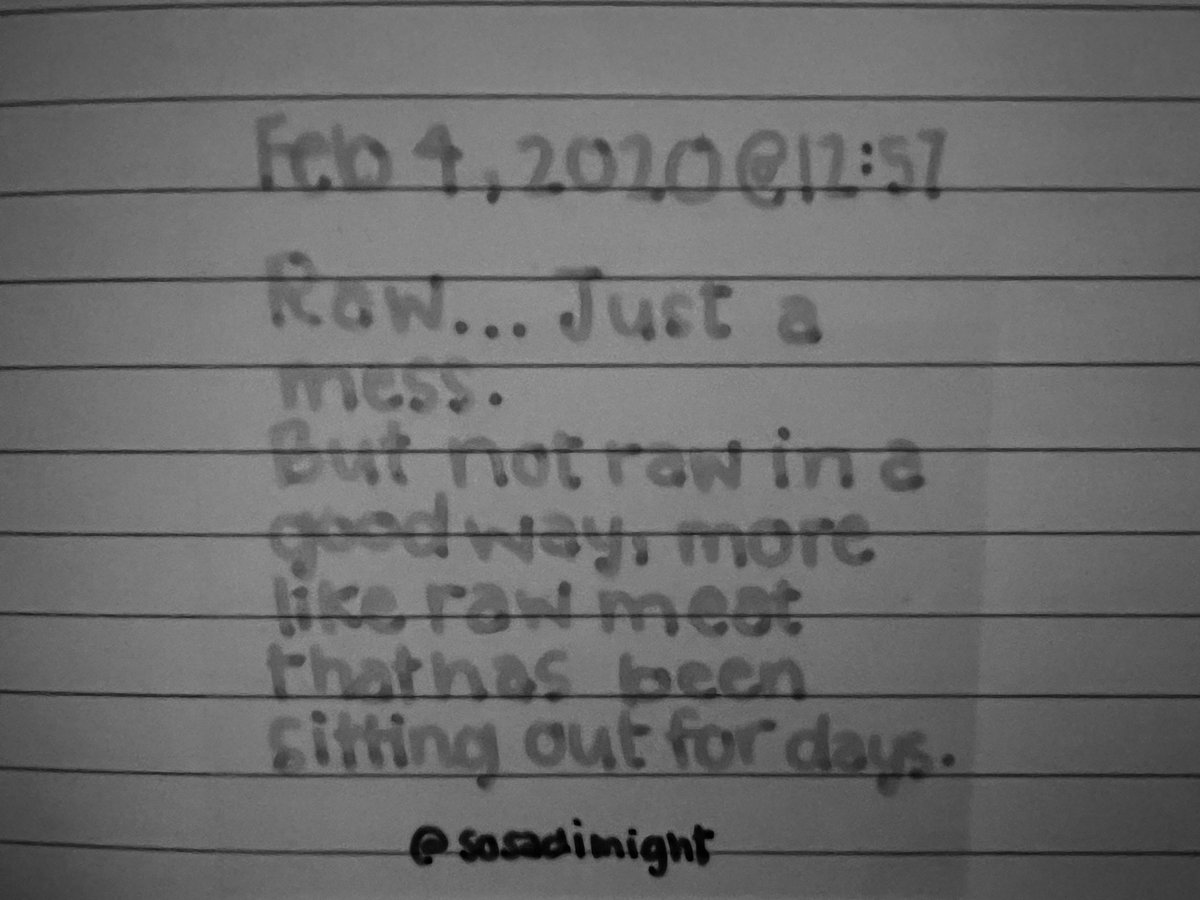 Feb 4, 2020 @12:57
Raw... Just a
mess.
But not raw in a
good way, more
like raw meat
that has been
sitting out for days.
@sosadimight